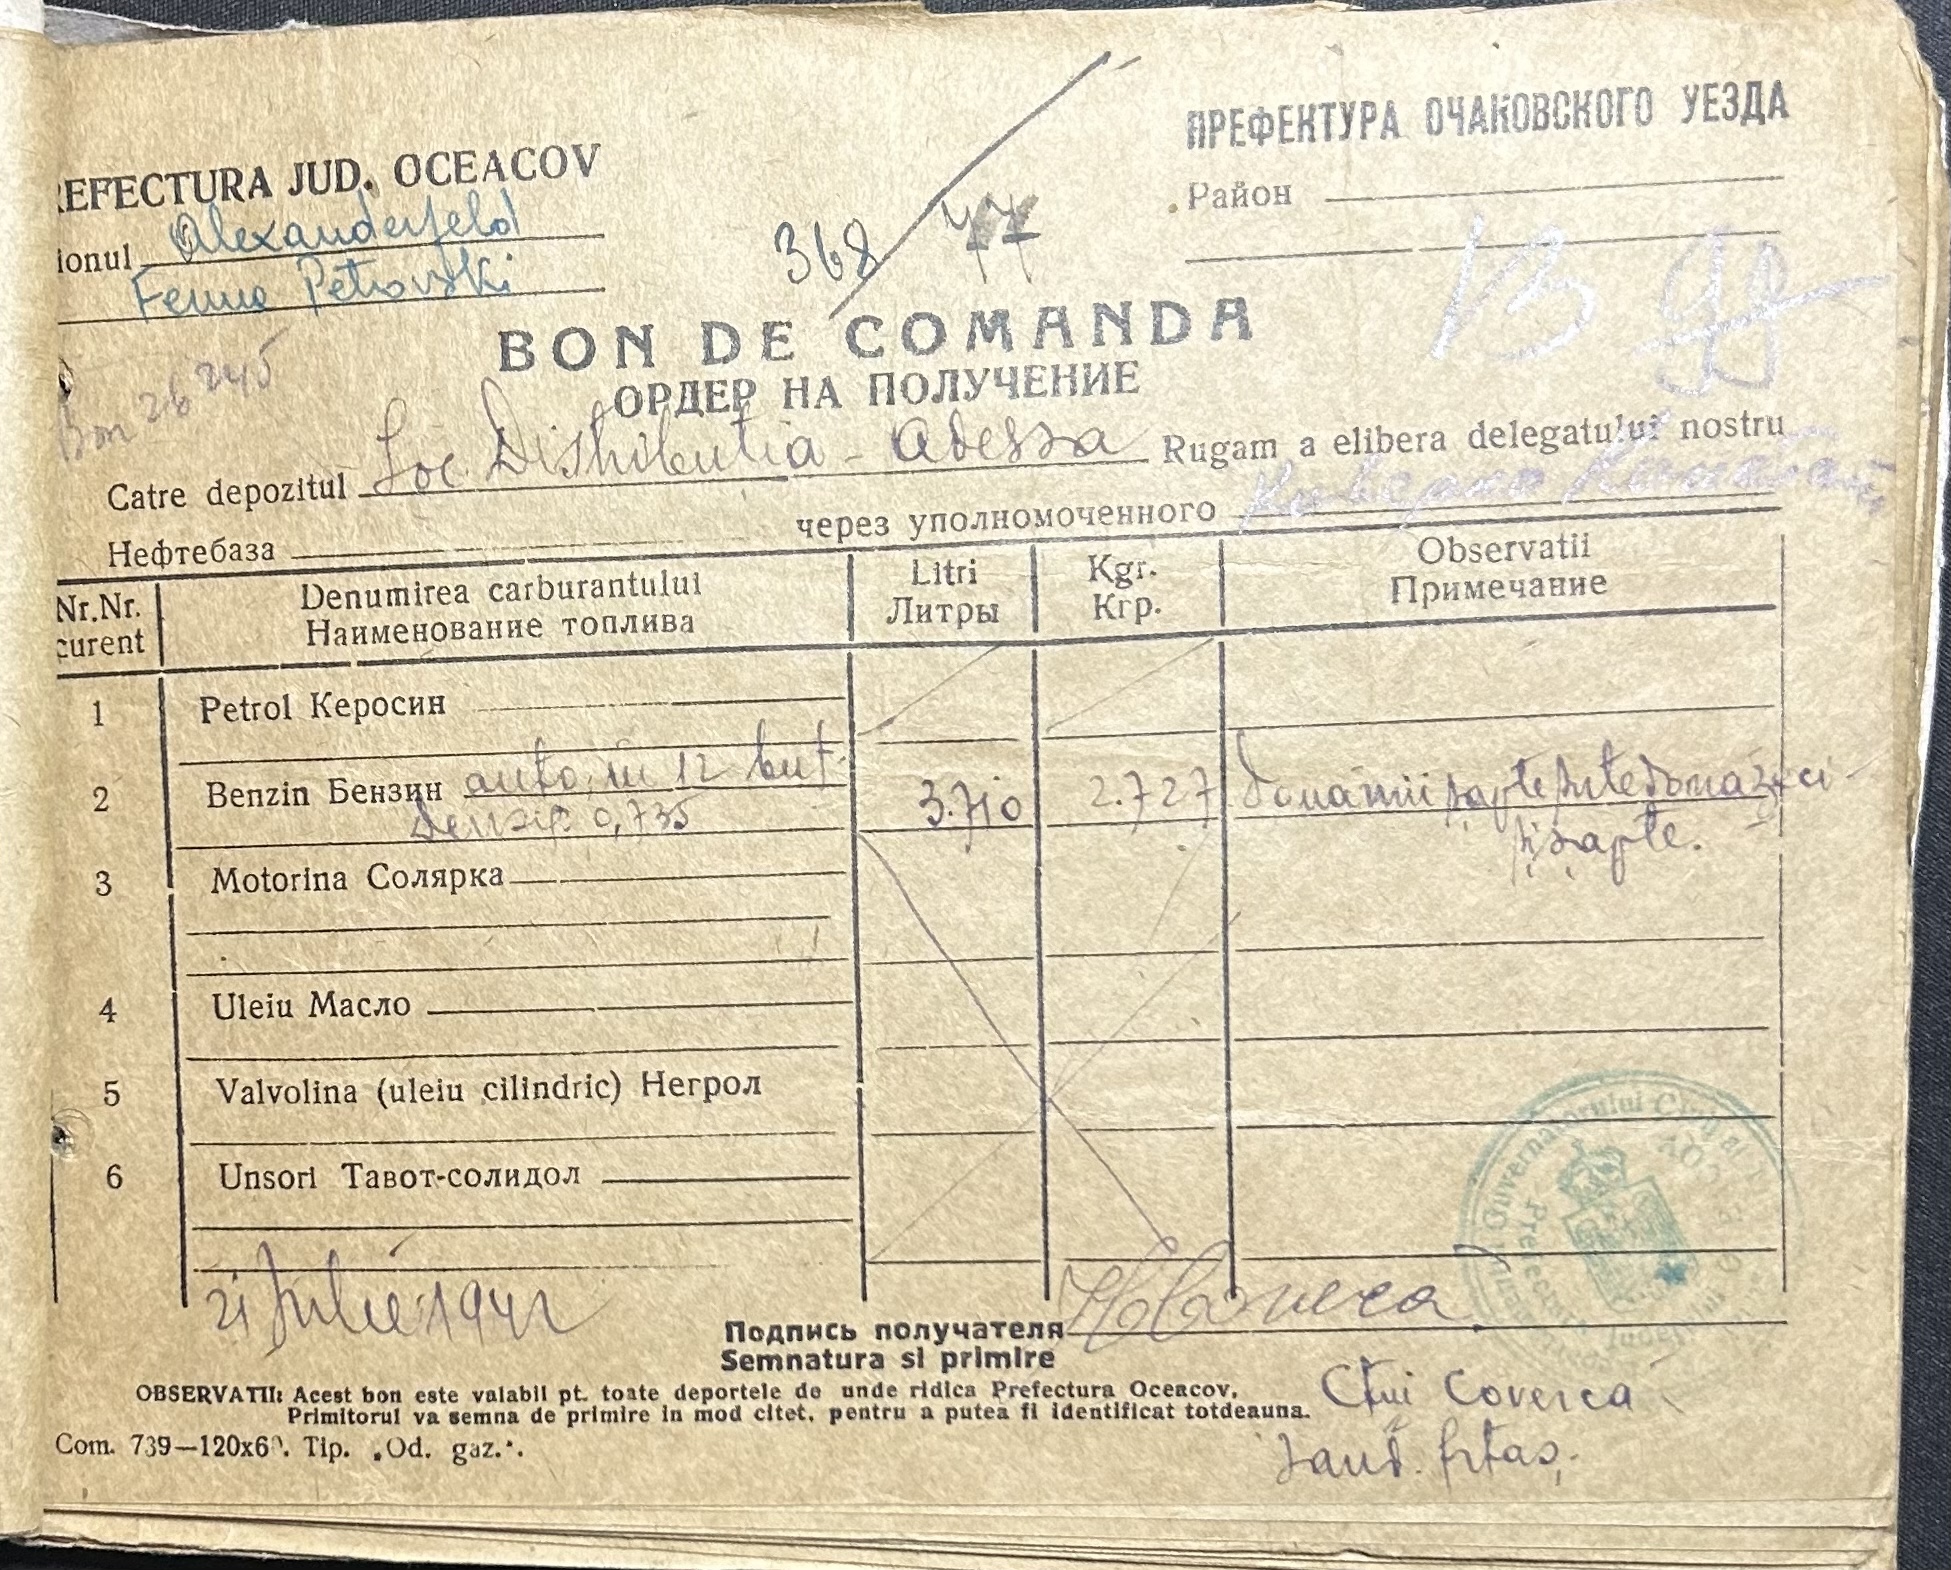 REFECTURA JUD. OCEACOV
ПРЕФЕКТУРА ОЧАКОВСКОГО УЕЗДА
ionul Alexanderfeld
Район
Ferma Petrovski
368 / 77
13 99
BON DE COMANDA
ОРДЕР НА ПОЛУЧЕНИЕ
Bon 26245
Catre depozitul Soc. Distributia - Odessa Rugam a elibera delegatului nostru
Нефтебаза через уполномоченного
Nr.Nr. curent
Denumirea carburantului
Наименование топлива
Litri
Литры
Kgr.
Кгр.
Observatii
Примечание
1 Petrol Керосин
2 Benzin Бензин auto, in 12 but. 3.710 2.727 douămii șapte sute douăzeci
densit. 0,735 și șapte.
3 Motorina Солярка
4 Uleiu Масло
5 Valvolina (uleiu cilindric) Негрол
6 Unsori Тавот-солидол
21 Iulie 1942
Подпись получателя
Semnatura si primire
OBSERVATII: Acest bon este valabil pt. toate deportele de unde ridica Prefectura Oceacov.
Primitorul va semna de primire in mod citet, pentru a putea fi identificat totdeauna.
Com. 739—120x6 . Tip. „Od. gaz.".
Guvernatorului Civil al
Prefectura Județului